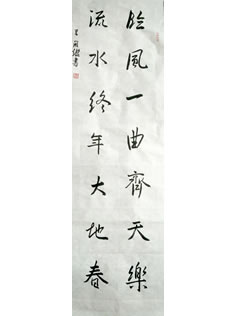 臨風一曲齊天樂
流水終年大地春